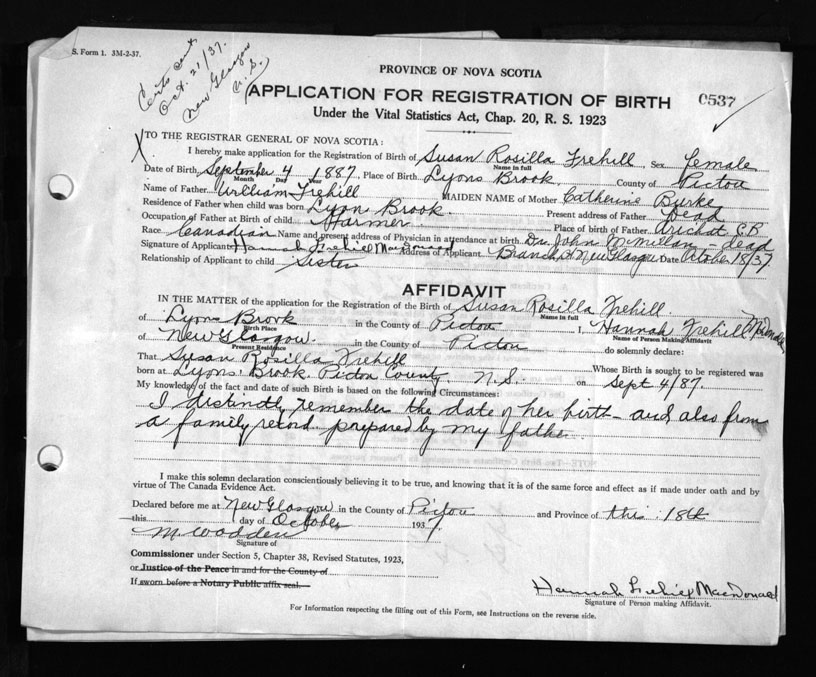 S. Form 1. 3M-2-37.
Certs sent
Oct. 21/37.
New Glasgow
N.S.
PROVINCE OF NOVA SCOTIA
APPLICATION FOR REGISTRATION OF BIRTH
0537
Under the Vital Statistics Act, Chap. 20, R. S. 1923
X TO THE REGISTRAR GENERAL OF NOVA SCOTIA:
I hereby make application for the Registration of Birth of Susan Rosilla Frehill, Sex female
Name in full
Date of Birth September 4 1887. Place of Birth Lyons Brook. County of Pictou
Month Day Year
Name of Father William Frehill MAIDEN NAME of Mother Catherine Burke
Residence of Father when child was born Lyon Brook. Present address of Father Dead
Occupation of Father at Birth of child Farmer Place of birth of Father Arichat C.B
Race Canadian Name and present address of Physician in attendance at birth Dr. John McMillan - dead
Signature of Applicant Hannah Frehiel MacDonard Address of Applicant Branch St New Glasgow Date October 18/37
Relationship of Applicant to child Sister
AFFIDAVIT
IN THE MATTER of the application for the Registration of the Birth of Susan Rosilla Frehill.
Name in full
of Lyons Brook in the County of Pictou I, Hannah Frehill McDonald
Birth Place
Name of Person Making Affidavit
of New Glasgow. in the County of Pictou do solemnly declare:
Present Residence
That Susan Rosilla Frehill Whose Birth is sought to be registered was
born at Lyons' Brook. Pictou County. N.S. on Sept 4/87.
My knowledge of the fact and date of such Birth is based on the following Circumstances:
I distinctly remember the date of her birth - and also from
a family record prepared by my father.
I make this solemn declaration conscientiously believing it to be true, and knowing that it is of the same force and effect as if made under oath and by
virtue of The Canada Evidence Act.
Declared before me at New Glasgow in the County of Pictou and Province of this 18th
this day of October 1937
M Wadden
Signature of
Commissioner under Section 5, Chapter 38, Revised Statutes, 1923,
or Justice of the Peace in and for the County of
If sworn before a Notary Public affix seal.
Hannah Frehiel MacDonard
Signature of Person making Affidavit.
For Information respecting the filling out of this Form, see Instructions on the reverse side.